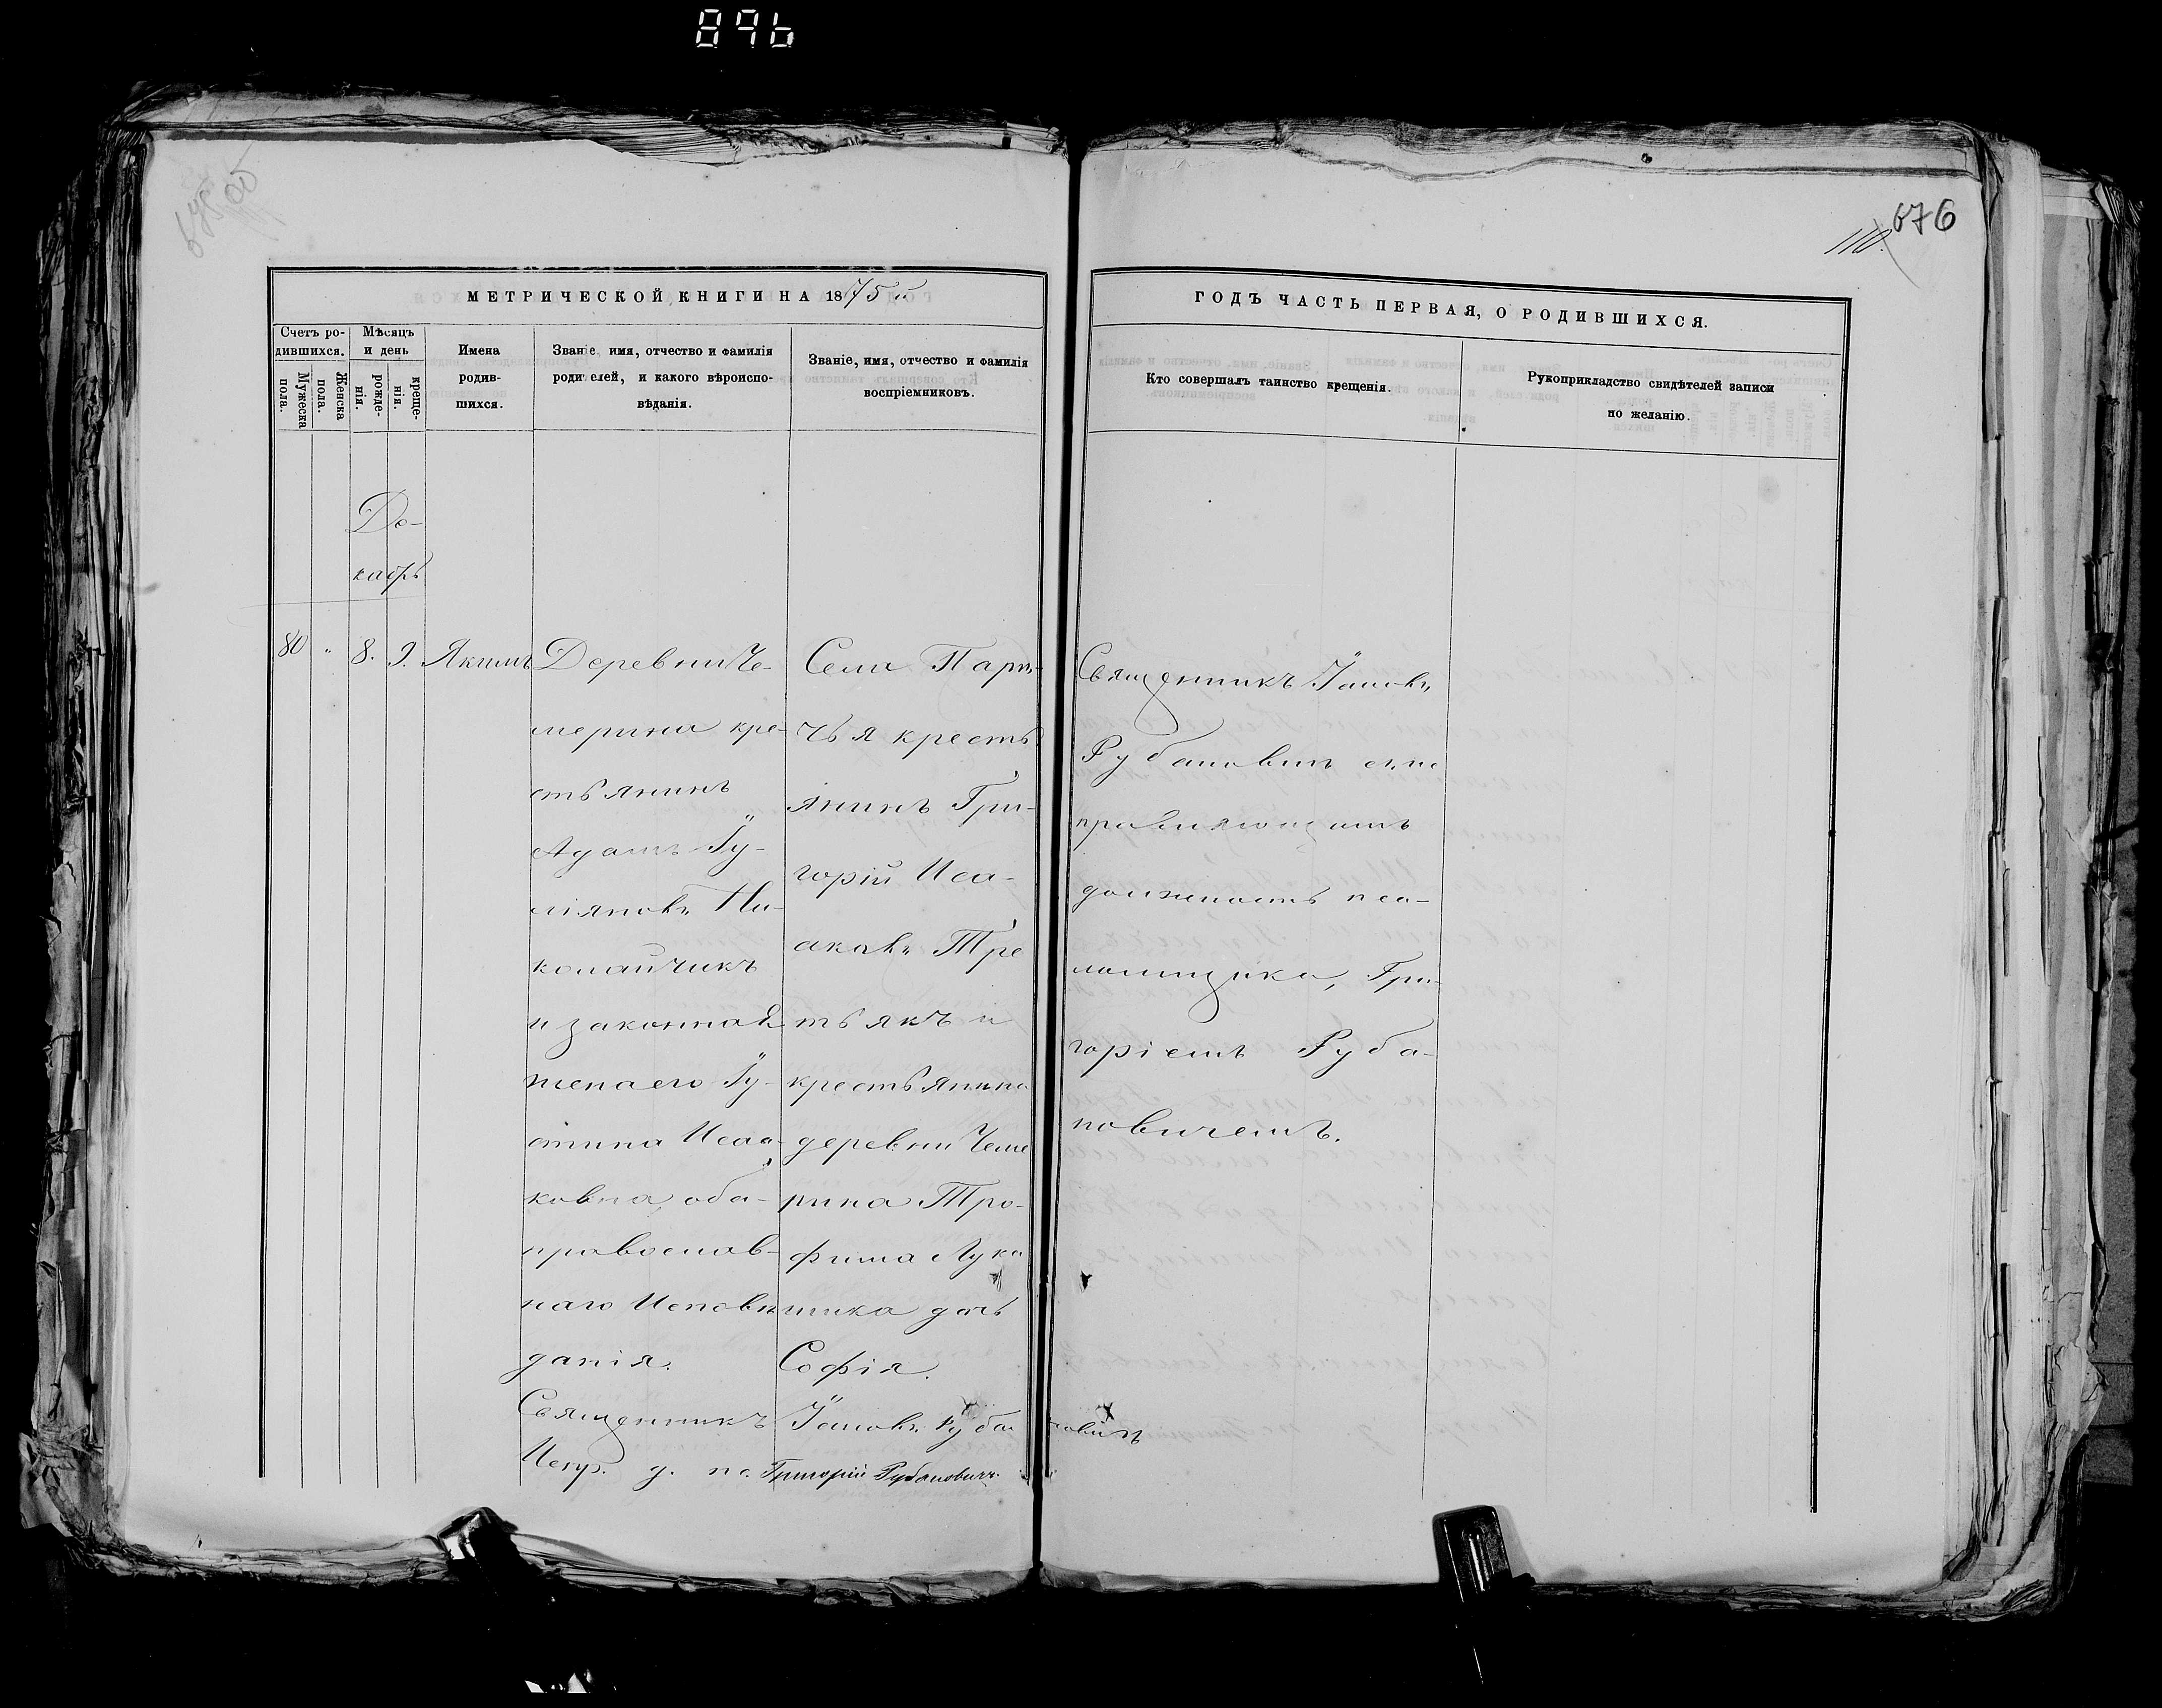 896
675 об
676
110.
МЕТРИЧЕСКОЙ КНИГИ НА 1875
ГОДЪ ЧАСТЬ ПЕРВАЯ, О РОДИВШИХСЯ.
Счетъ ро-
дившихся.
Мужеска
пола.
Женска
пола.
Мѣсяцъ
и день
рожде-
нія.
креще-
нія.
Имена
родив-
шихся.
Званіе имя, отчество и фамилія
родителей, и какого вѣроиспо-
вѣданія.
Званіе, имя, отчество и фамилія
воспріемниковъ.
Кто совершалъ таинство крещенія.
Рукоприкладство свидѣтелей записи
по желанію.
Де-
кабрь
80 " 8. 9. Якимъ
Деревни Че-
мерина кре-
стьянинъ
Адамъ Іу-
ліяновъ Ни-
колайчикъ
и законная
жена его Іу-
стина Исаа-
ковна, оба
православ-
наго Исповѣ
данія.
Села Пари-
чья кресть
янинъ Гри-
горій Иса-
аковъ Тре
тьякъ и
крестьянина
деревни Чеме
рина Тро-
фима Лука
шика дочь
Софія.
Священникъ Іаковъ
Рубановичъ съ ис
правляющимъ
должность пса-
ломщика, Гри-
горіемъ Руба-
новичемъ.
Священникъ Іаковъ Рубановичъ
Испр. д. пс. Григорій Рубановичъ.